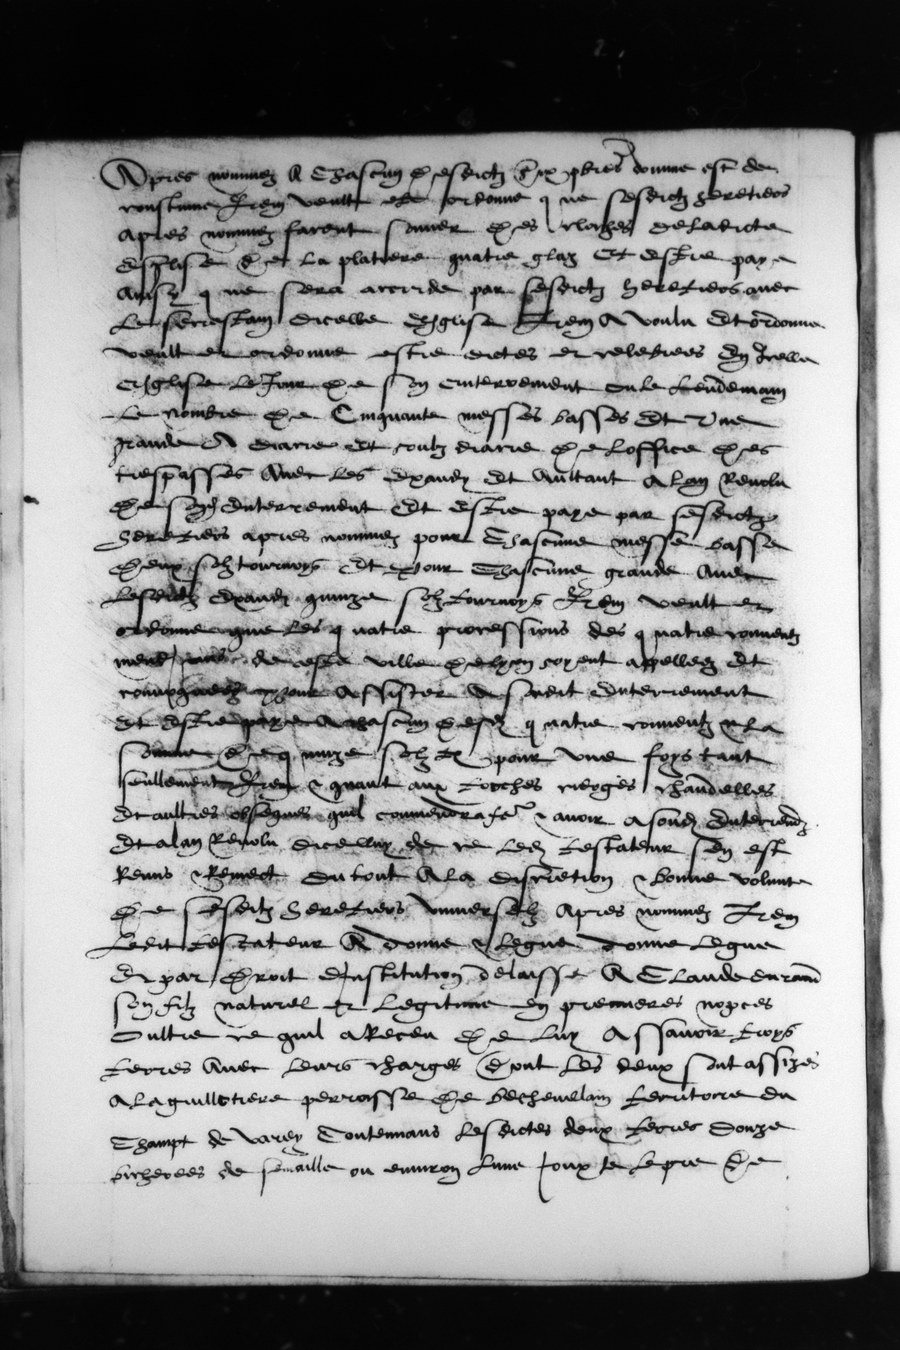 Apres nommez A Chascun desdictz pbres donne est de
coustume Item veult et ordonne que sesdictz heretiers
apres nommez facent sonner des cloches deladicte
esglise de La platiere quatre glaz Et estre paye
Ainsy que sera accorde par sesdictz heretiers avec
Le secrestain dicelle Esglise Item A voulu Et ordonne
veult et ordonne estre dictes et celebrees En Icelle
Esglise Le Jour de son Enterrement ou Le Lendemain
Le nombre de Cinquante messes basses Et Une
grande A diacre et soubz diacre de Loffice des
trespasses Avec Les Et Aultant A Lan Revolu
de sond Enterrement Et Estre paye par sesdictz
heretiers apres nommez pour Chascune messe basse
deux solz tournoys Et pour Chascune grande Avec
Lesdictz quinze solz tournoys Item veult et
ordonne que Les quatre processions des quatre conventz
mendians de ceste ville de Lyon soyent appellez Et
convoquees pour Assister A sondit Enterrement
Et Estre paye A chascun desd quatre conventz La
somme de quinze solz tz pour une foys tant
seullement Item & quant aux torches cierges chandelles
Et aultres obseques quil conviendra fe & avoir A sond Enterremt
Et A lan Revolu dicelluy de ce Led testateur sen est
Remis & Remect du tout A La discretion & bonne volunte
de sesditz heretiers universelz Apres nommez Item
Ledit testateur A donne & Legue donne Legue
Et par droit dinstitution delaisse A Claude durand
son filz naturel et Legitime en premieres nopces
oultre ce quil a Receu de Luy Assavoir troys
terres Avec Leurs charges dont Les deux sont assizes
A La guillotiere perroisse de bechevellain territoire du
Champt de varey Contenans Lesdictes deux terres douze
bicherees de semaille ou environ Lune joux te Le pre de